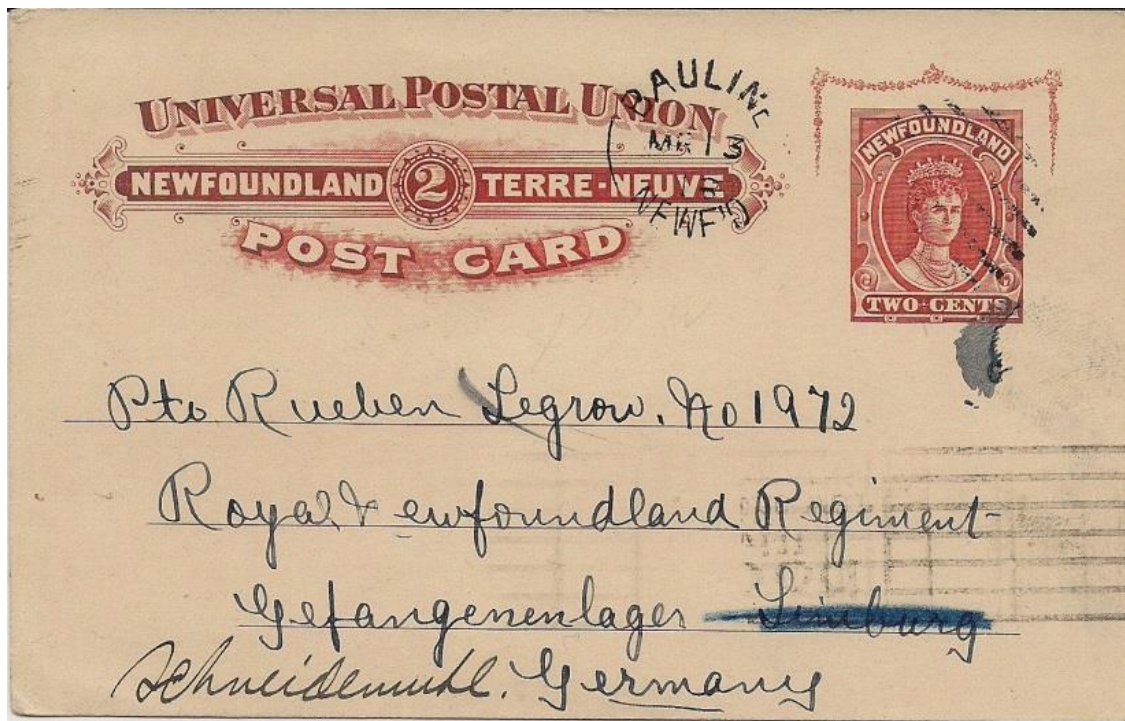 UNIVERSAL POSTAL UNION
NEWFOUNDLAND 2 TERRE-NEUVE
POST CARD
PAULINE
MR 13
18
NEWF'D
NEWFOUNDLAND
TWO CENTS
Pte Rueben Legrow. No 1972
Royal Newfoundland Regiment
Gefangenenlager Limburg
Schneidemuhl. Germany